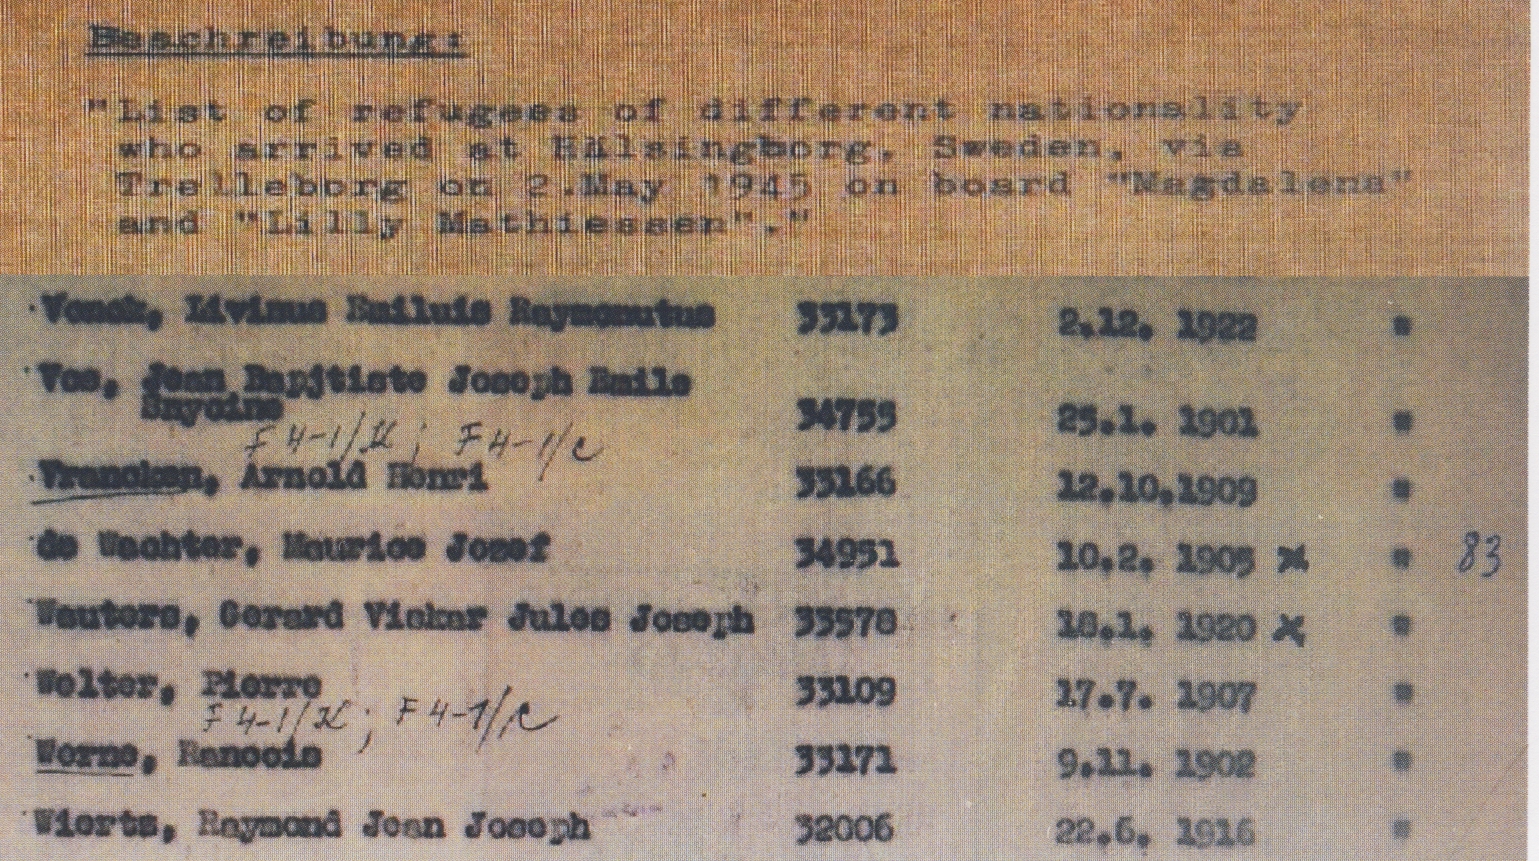 Beschreibung:
"List of refugees of different nationality
who arrived at Hälsingborg, Sweden, via
Trelleborg on 2.May 1945 on board "Magdalena"
and "Lilly Mathiessen"."
Vonck, Livinus Emiluis Raymonutus 33173 2.12. 1922 "
Vos, Jean Bapjtiste Joseph Emile
34755 25.1. 1901 "
F 4-1/K ; F 4-1/c
Vrancken, Arnold Henri 33166 12.10.1909 "
de Wachter, Maurice Jozef 34951 10.2. 1905 x " 83
Wauters, Gerard Vickar Jules Joseph 33578 18.1. 1920 x "
Welter, Pierre 33109 17.7. 1907 "
F 4-1/K ; F 4-1/c
Werne, Ranoois 33171 9.11. 1902 "
Wierts, Raymond Jean Joseph 32006 22.6. 1916 "